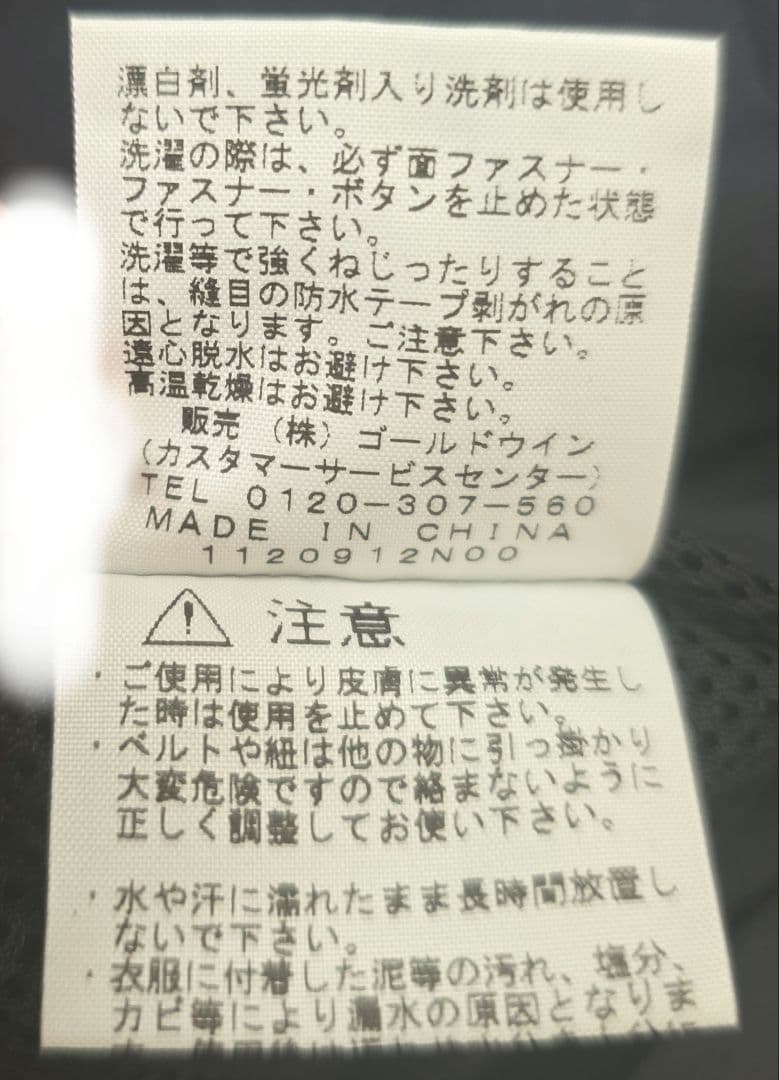 漂白剤、蛍光剤入り洗剤は使用し
ないで下さい。
洗濯の際は、必ず面ファスナー・
ファスナー・ボタンを止めた状態
で行って下さい。
洗濯等で強くねじったりすること
は、縫目の防水テープ剥がれの原
因となります。ご注意下さい。
遠心脱水はお避け下さい。
高温乾燥はお避け下さい。
販売 (株) ゴールドウイン
(カスタマーサービスセンター)
TEL 0120-307-560
MADE IN CHINA
1120912N00
注意
・ご使用により皮膚に異常が発生し
た時は使用を止めて下さい。
・ベルトや紐は他の物に引っ掛かり
大変危険ですので絡まないように
正しく調整してお使い下さい。
・水や汗に濡れたまま長時間放置し
ないで下さい。
・衣服に付着した泥等の汚れ、塩分、
カビ等により漏水の原因となりま